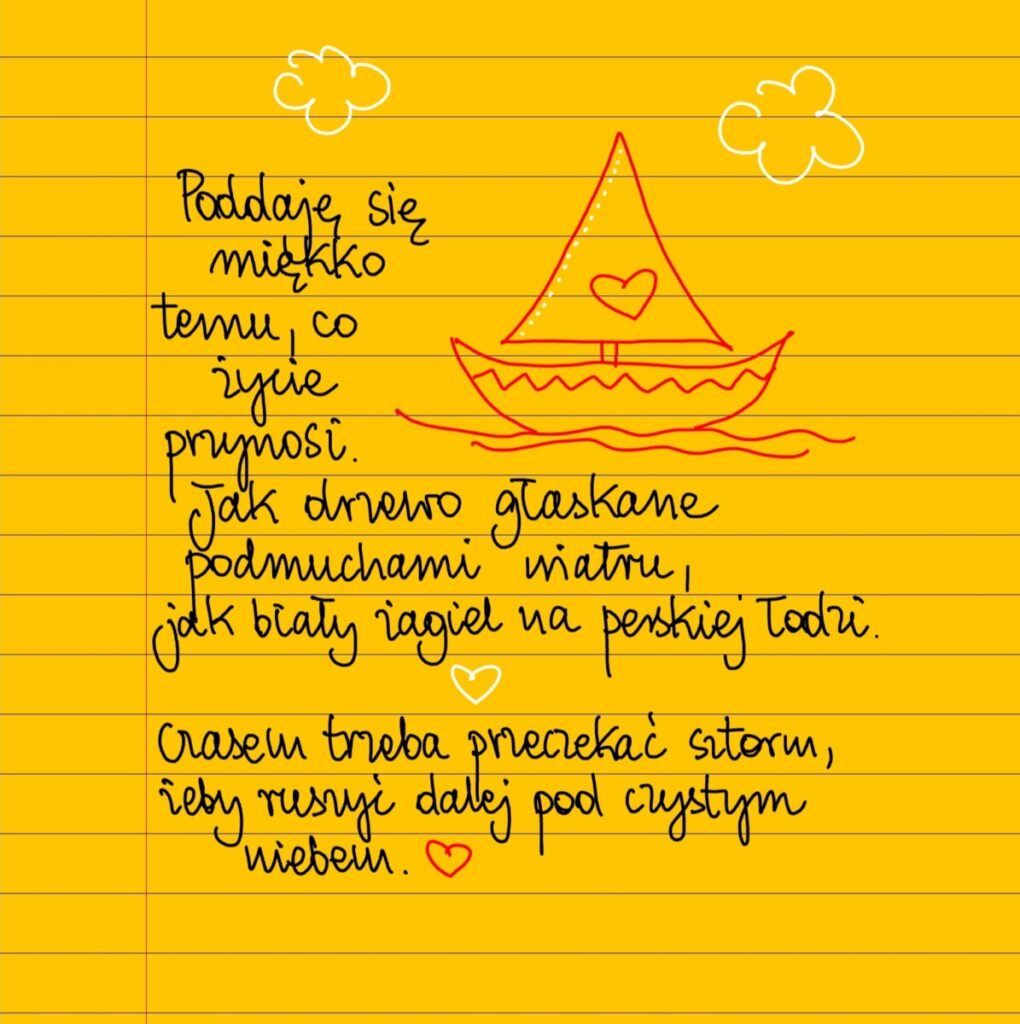 Poddaję się
miękko
temu, co
życie
przynosi.
Jak drzewo głaskane
podmuchami wiatru,
jak biały żagiel na perskiej łodzi.
Czasem trzeba przeczekać sztorm,
żeby ruszyć dalej pod czystym
niebem.